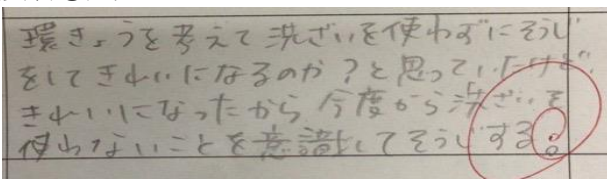 環きょうを考えて洗ざいを使わずにそうじ
をしてきれいになるのか?と思っていたけど、
きれいになったから今度から洗ざいを
使わないことを意識してそうじする。